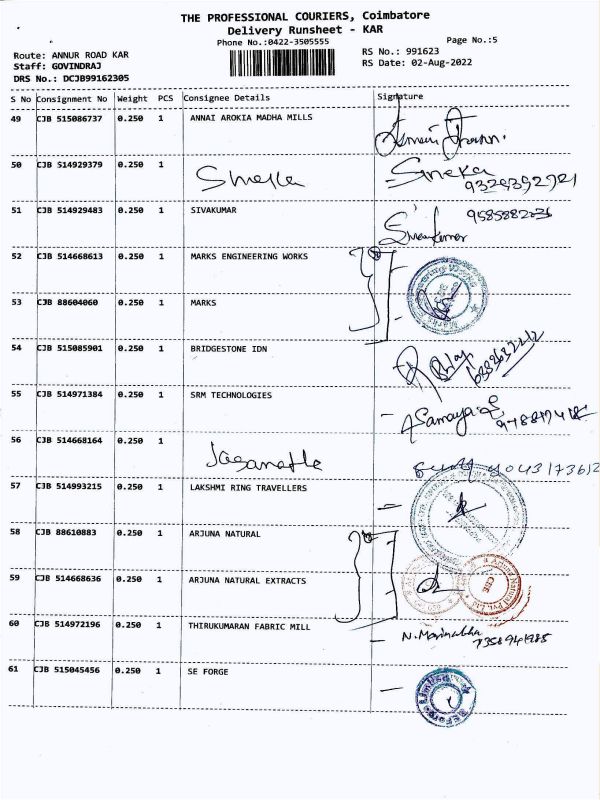 THE PROFESSIONAL COURIERS, Coimbatore
Delivery Runsheet - KAR
Phone No.:0422-3505555
Page No.:5
Route: ANNUR ROAD KAR
RS No.: 991623
Staff: GOVINDRAJ
RS Date: 02-Aug-2022
DRS No.: DCJB99162305
S No Consignment No Weight PCS Consignee Details Signature
49 CJB 515086737 0.250 1 ANNAI AROKIA MADHA MILLS
50 CJB 514929379 0.250 1 Sneka
51 CJB 514929483 0.250 1 SIVAKUMAR Sivakumar
52 CJB 514668613 0.250 1 MARKS ENGINEERING WORKS
53 CJB 88604060 0.250 1 MARKS
54 CJB 515085901 0.250 1 BRIDGESTONE IDN
55 CJB 514971384 0.250 1 SRM TECHNOLOGIES
56 CJB 514668164 0.250 1
57 CJB 514993215 0.250 1 LAKSHMI RING TRAVELLERS
58 CJB 88610883 0.250 1 ARJUNA NATURAL
59 CJB 514668636 0.250 1 ARJUNA NATURAL EXTRACTS
60 CJB 514972196 0.250 1 THIRUKUMARAN FABRIC MILL
61 CJB 515045456 0.250 1 SE FORGE